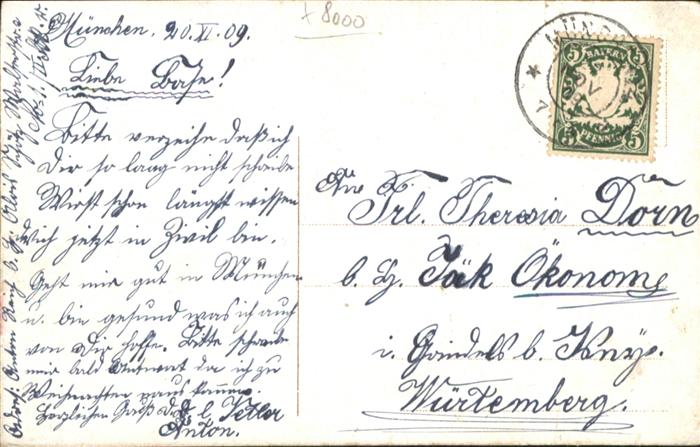 München, 20. XI. 09.
Liebe Base!
Bitte verzeihe daß ich
Dir so lang nicht schreibe
Wirst schon längst wissen
ich jetzt in Zivil bin.
Geht mir gut in München
u. bin gesund was ich auch
von Dir hoffe. Bitte schreibe
mir bald Antwort da ich zu
Weihnachten naus komme
Herzlichen Gruß D. l. Vetter
Anton.
Adress: Anton b. H. Alois
+ 8000
MÜNCH
BAYERN
5 5
5 5
PFENNIG
An
Frl. Theresia Dorn
b. H. Jäk Ökonom
i. b.
Würtemberg.